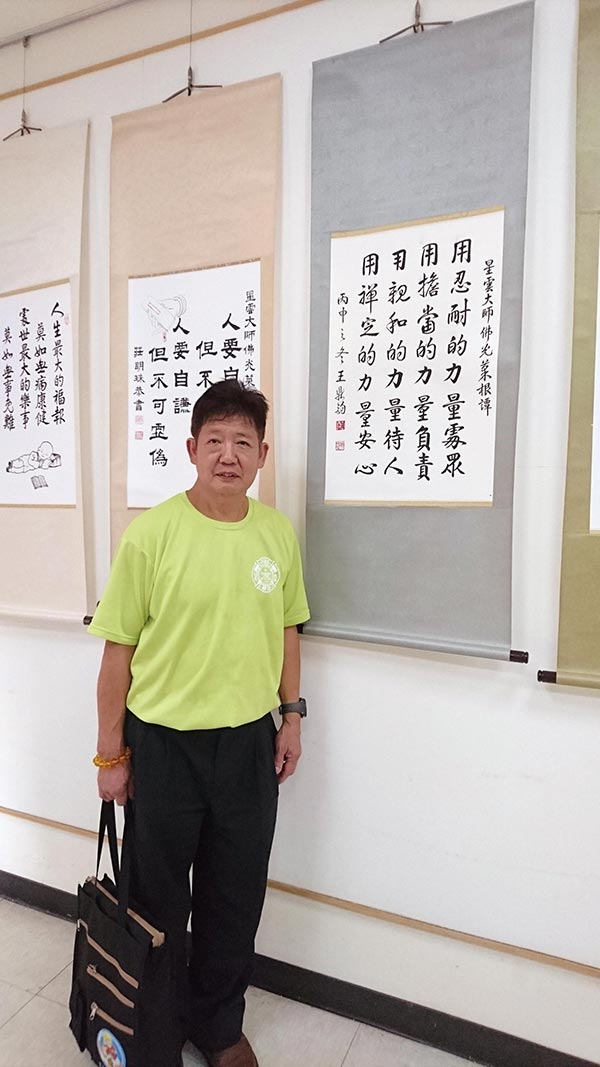 星雲大師佛光菜根譚
用忍耐的力量處眾
用擔當的力量負責
用親和的力量待人
用禪定的力量安心
丙申之冬王
星雲大師佛光菜
人要
但不
人要自謙
但不可虛偽
莊明珠恭書
人生最大的福報
莫如無病康健
處世最大的樂事
莫如無事免難